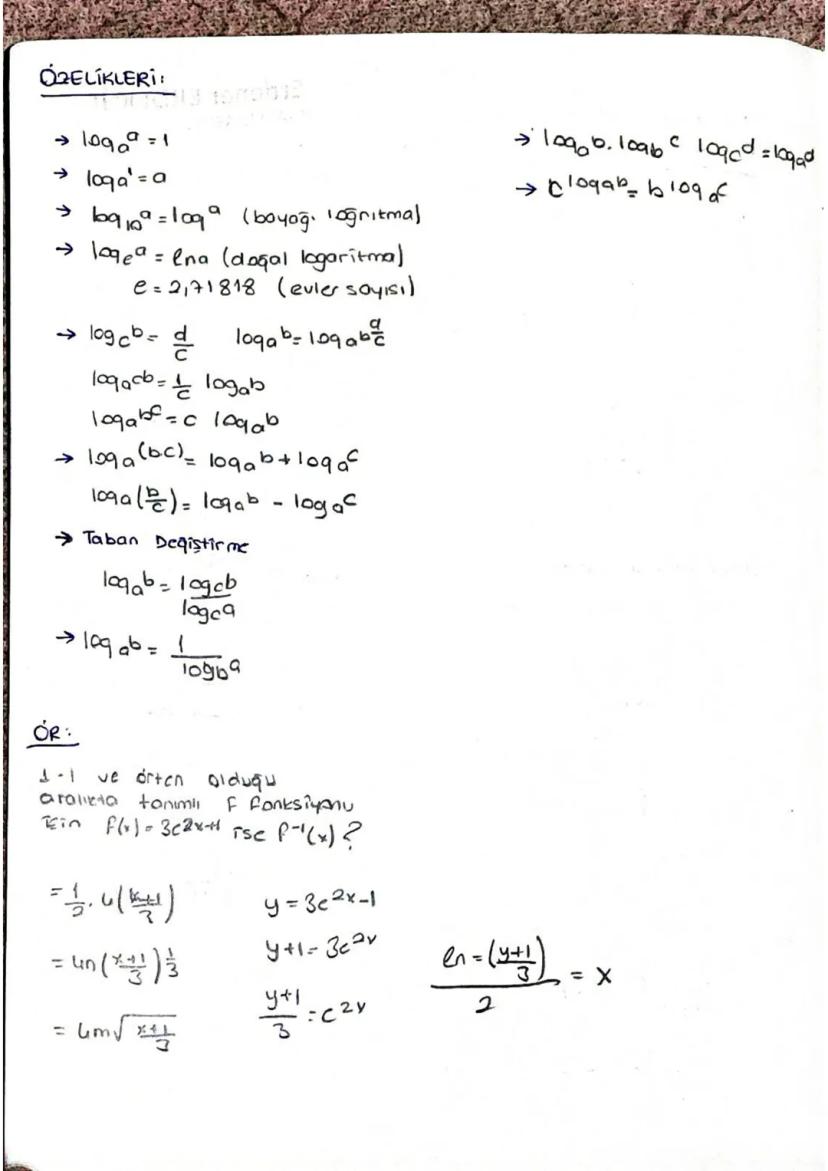 ÖZELİKLERİ:
→ logₐa = 1
→ loga' = a
→ log₁₀a = log a (bayağ. loğritma)
→ logₑa = lna (doğal logaritma)
e = 2,71818 (euler sayısı)
→ log꜀b = d/c logₐb = logₐb^(d/c)
logₐcb = 1/c logₐb
logₐb^c = c logₐb
→ logₐ(bc) = logₐb + logₐc
logₐ(b/c) = logₐb - logₐc
→ Taban Değiştirme
logₐb = log꜀b / log꜀a
→ logₐb = 1 / log_b a
→ logₐb . log_b c log꜀d = logₐd
→ c^logₐb = b^logₐc
ÖR:
1-1 ve örten olduğu
aralıkta tanımlı F fonksiyonu
için f(x) = 3e^2x-1 ise f⁻¹(x) ?
= 1/2 . ln((x+1)/3)
= ln((x+1)/3)^1/3
= √((x+1)/3)
y = 3e^2x-1
y+1 = 3e^2x
(y+1)/3 = e^2x
ln = ((y+1)/3) / 2 = x